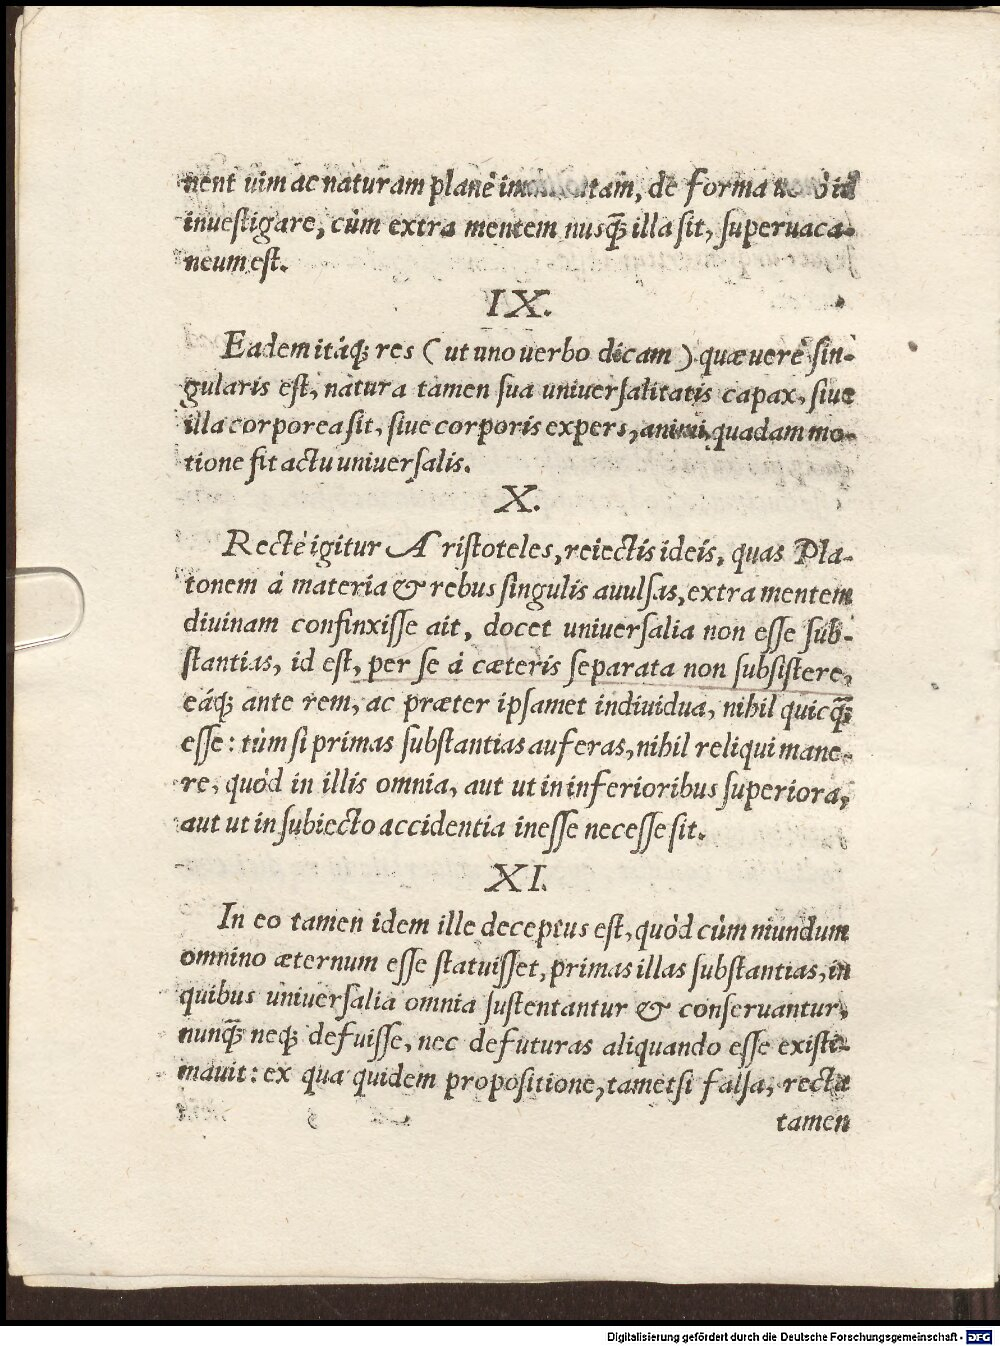 nent uim ac naturam planè tam, de forma
inueſtigare, cùm extra mentem nusq̃; illa ſit, ſuperuaca-
neum eſt.
IX.
Eadem itáq; res ( ut uno uerbo dicam ) quæ uerè ſin-
gularis eſt, natura tamen ſua uniuerſalitatis capax, ſiue
illa corporea ſit, ſiue corporis expers, animi quadam mo-
tione fit actu uniuerſalis.
X.
Rectè igitur Ariſtoteles, reiectis ideis, quas Pla-
tonem à materia & rebus ſingulis auulſas, extra mentem
diuinam confinxiſſe ait, docet uniuerſalia non eſſe ſub-
ſtantias, id eſt, per ſe à cæteris ſeparata non ſubſiſtere,
eáq; ante rem, ac præter ipſamet indiuidua, nihil quicq̃;
eſſe: tùm ſi primas ſubſtantias auferas, nihil reliqui mane-
re, quòd in illis omnia, aut ut in inferioribus ſuperiora,
aut ut in ſubiecto accidentia ineſſe neceſſe ſit.
XI.
In eo tamen idem ille deceptus eſt, quòd cùm mundum
omnino æternum eſſe ſtatuiſſet, primas illas ſubſtantias, in
quibus uniuerſalia omnia ſuſtentantur & conſeruantur,
nunq̃; neq; defuiſſe, nec defuturas aliquando eſſe exiſti-
mauit: ex qua quidem propoſitione, tametſi falſa, recta
tamen
Digitalisierung gefördert durch die Deutsche Forschungsgemeinschaft - DFG